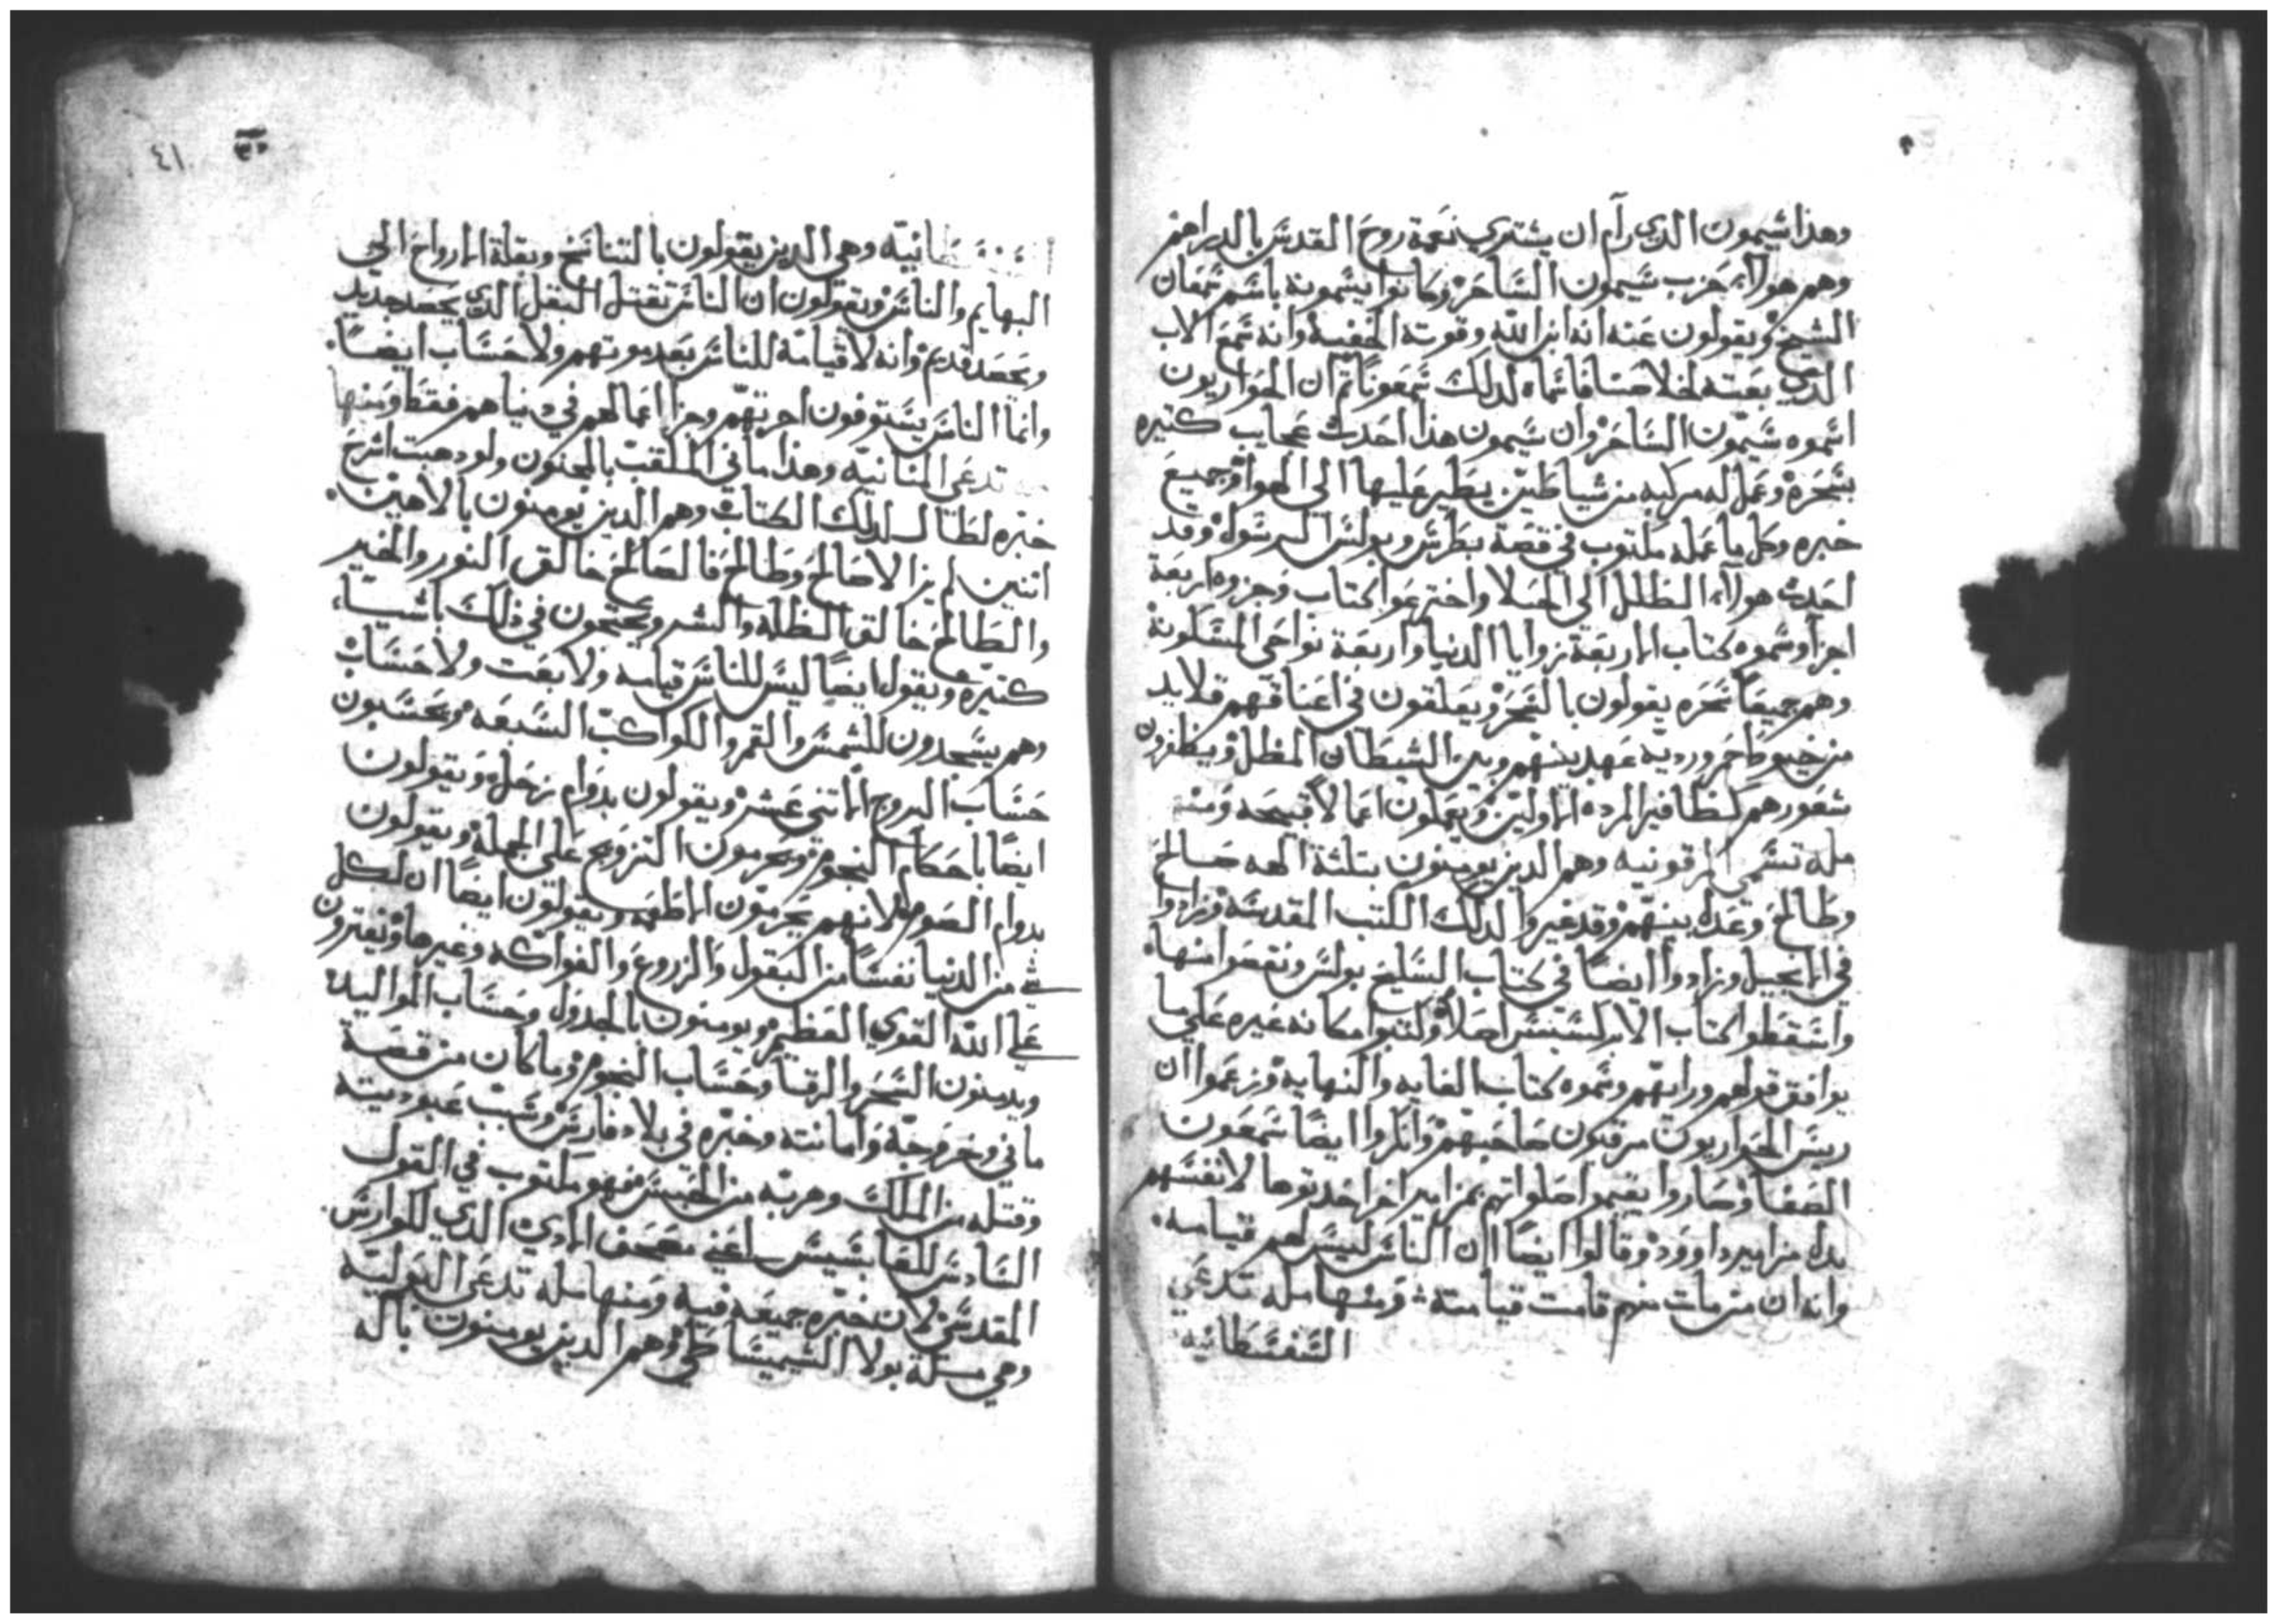 وهذا شيمون الذي رام ان يشتري نعمة روح القدس بالدراهم
وهم هولاء حزب شيمون الساحر وكانوا يسمونه باسم سمعان
الشيخ ويقولون عنه انه ابن الله وقوته الخفية وانه سمع الاب
الذي بعثه لخلاصنا فاسماه لذلك سمعونا ثم ان الحواريون
اسموه شيمون الساحر وان شيمون هذا احدث عجايب كتيره
بسحره وعمل له مركبه من شياطين يطير عليها الى الهوا وجميع
خبره وكل ما عمله مكتوب في قصة بطرس وبولس الرسول وقد
احدث هولاء الظلل الى الجهلا واخترعوا كتاب وجزوه اربعة
اجزا وسموه كتاب الاربعة زوايا الدنيا واربعة نواحي المسكونة
وهم جميعا سحره يقولون بالسحر ويعلقون في اعناقهم قلايد
من خيوط حمر ورديه عهد بينهم وبين الشيطان المظل ويظفرون
شعورهم كظافير المرده الاولين ويعملون اعمالا قبيحه ومنه
مله تسمى المرقونيه وهم الذين يومنون بتلثة الهه صالح
وطالح وعدل بينهم وقد غيروا لذلك الكتب المقدسه وزادوا
في الانجيل وزادوا ايضا في كتاب السليح بولس ونقصوا منها
واسقطوا كتاب الابركسس اصلا وكتبوا مكانه غيره على ما
يوافق قولهم ورايهم وسموه كتاب الغايه والنهايه وزعموا ان
ريس الحواريون مرقيون صاحبهم وانكروا ايضا سمعون
الصفا وصاروا يقيموا صلواتهم بمزامير اخر احدثوها لانفسهم
بدل مزامير داوود وقالوا ايضا ان الناس ليس لهم قيامه
وانه ان من مات منهم قامت قيامته ومنها مله تدعي
السفسطانيه
٤١
وهي الذين يقولون بالتناسخ وبقلة الارواح الى
البهايم والناس ويقولون ان الناس تقتل البقل الذي يحصد جديد
ويحصد قديم وانه لا قيامة للناس بعد موتهم ولا حساب ايضا
وانما الناس يستوفون اجرتهم وجزا اعمالهم في دنياهم فقط ومنها
تدعي المنانيه وهذا ماني الملقب بالمجنون ولو دهبت اشرح
خبره لطال لذلك الكتاب وهم الذين يومنون بالاهين
اتنين لم يزالا صالح وطالح فالصالح خالق النور والخير
والطالح خالق الظلمه والشر ويحتجون في ذلك باشيا
كتيره ويقول ايضا ليس للناس قيامه ولا بعت ولا حساب
وهم يسجدون للشمس والقمر والكواكب السبعه ويحسبون
حساب البروج الاتني عشر ويقولون بدوام زحل ويقولون
ايضا باحكام النجوم ويحرمون التزويج على الجمله ويقولون
بدوام الصوم لانهم يحرمون الاطعمه ويقولون ايضا ان لكل
شي من الدنيا نفسا من البقول والزروع والفواكه وغيرها ويفترون
على الله القوي العظيم ويومنون بالجدول وحساب المواليد
ويدينون السحر والرقا وحساب النجوم وما كان من قصة
ماني وخروجه وامانته وخبره في بلاد فارس وسبب عبوديته
وقتله من الملك وهربه من الحبس فهو مكتوب في القول
السادس للقابسيس اعني مصحف الهادي الذي للوارس
المقدس لان خبره جميعه فيه ومنها مله تدعي البوليه
وهي مسلة بولا الشميشاطي وهم الذين يومنون باله